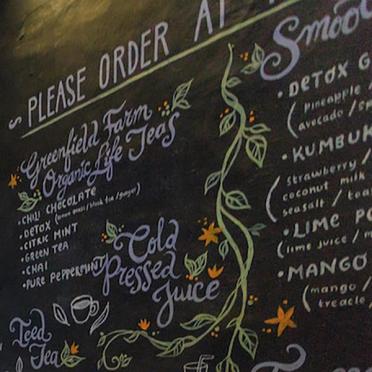 PLEASE ORDER AT
Greenfield Farm
Organic Life Teas
• CHILI CHOCOLATE
• DETOX
• CITRIC MINT
• GREEN TEA
• CHAI
• PURE PEPPERMINT
Cold
Pressed
Juice
Iced
Tea
Smoo
• DETOX G
(pineapple /
avocado / s
• KUMBUK
(strawberry /
coconut milk
seasalt / toas
• LIME PO
(lime juice / m
• MANGO
(mango /
treacle /